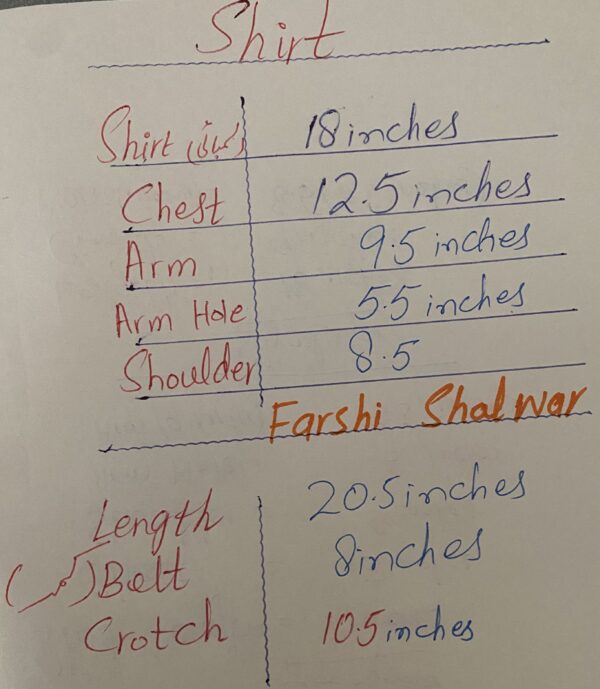 Shirt
Shirt (لمبائی) 18 inches
Chest 12.5 inches
Arm 9.5 inches
Arm Hole 5.5 inches
Shoulder 8.5
Farshi Shalwar
Length 20.5 inches
Belt 8 inches
Crotch 10.5 inches